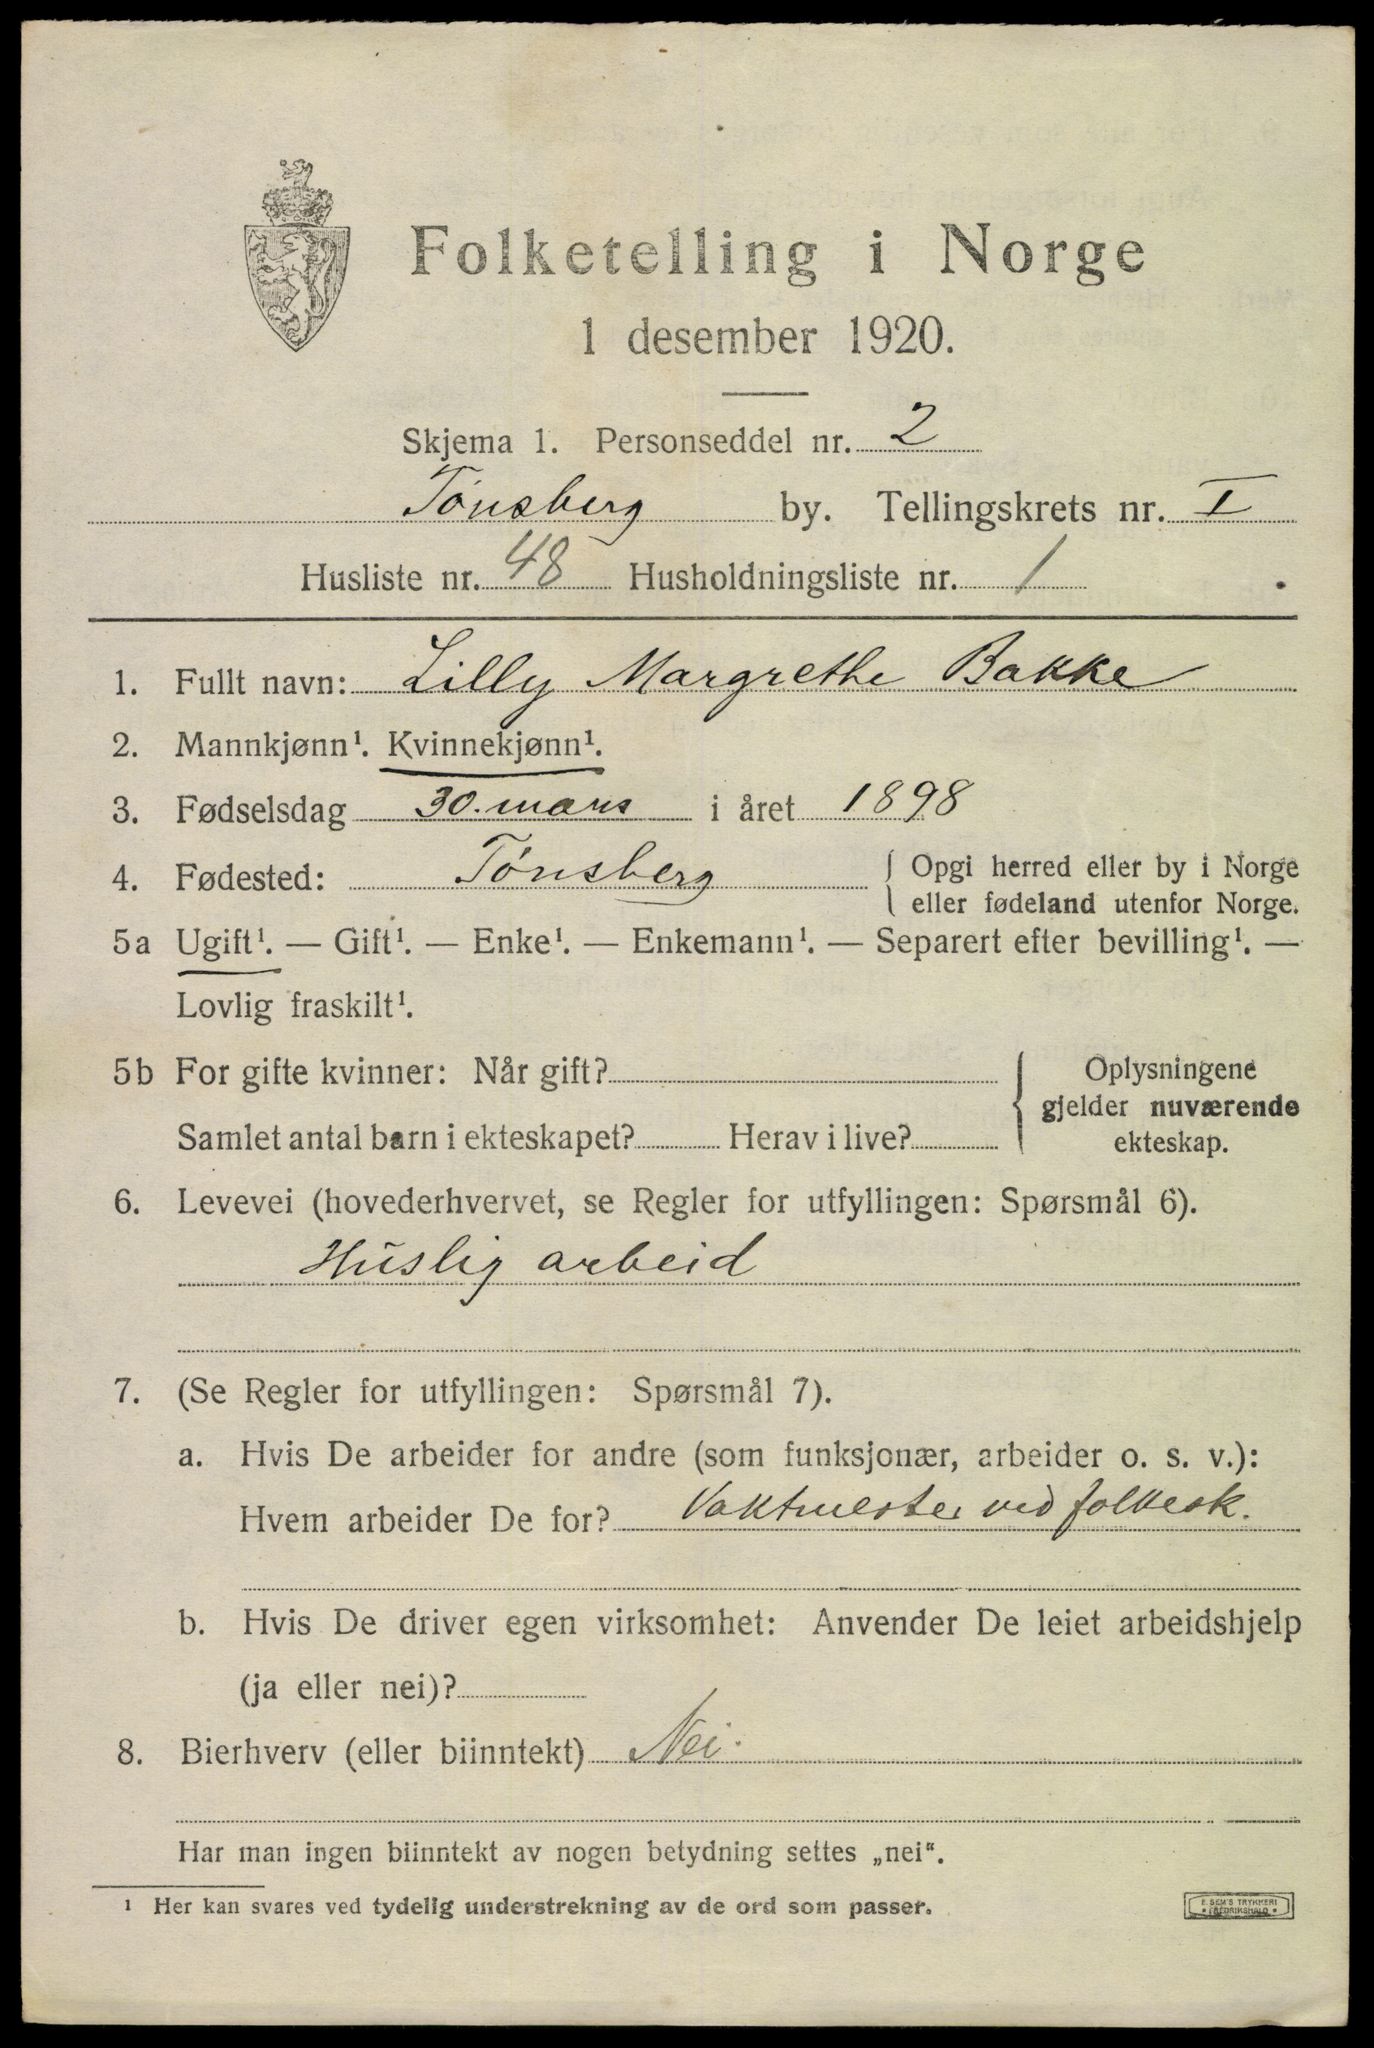 Folketelling i Norge
1 desember 1920.
Skjema 1. Personseddel nr. 2
Tønsberg by. Tellingskrets nr. I
Husliste nr. 48 Husholdningsliste nr. 1
1. Fullt navn: Lilly Margrethe Bakke
2. Mannkjønn¹. Kvinnekjønn¹.
3. Fødselsdag 30. mars i året 1898
4. Fødested: Tønsberg { Opgi herred eller by i Norge
eller fødeland utenfor Norge.
5a Ugift¹. — Gift¹. — Enke¹. — Enkemann¹. — Separert efter bevilling¹. —
Lovlig fraskilt¹.
5b For gifte kvinner: Når gift? { Oplysningene
gjelder nuværende
Samlet antal barn i ekteskapet? Herav i live?
ekteskap.
6. Levevei (hovederhvervet, se Regler for utfyllingen: Spørsmål 6).
Huslig arbeid
7. (Se Regler for utfyllingen: Spørsmål 7).
a. Hvis De arbeider for andre (som funksjonær, arbeider o. s. v.):
Hvem arbeider De for? Vaktmester ved folkesk.
b. Hvis De driver egen virksomhet: Anvender De leiet arbeidshjelp
(ja eller nei)?
8. Bierhverv (eller biinntekt) Nei.
Har man ingen biinntekt av nogen betydning settes „nei“.
¹ Her kan svares ved tydelig understrekning av de ord som passer.
E. SEM'S TRYKKERI
* FREDRIKSHALD *